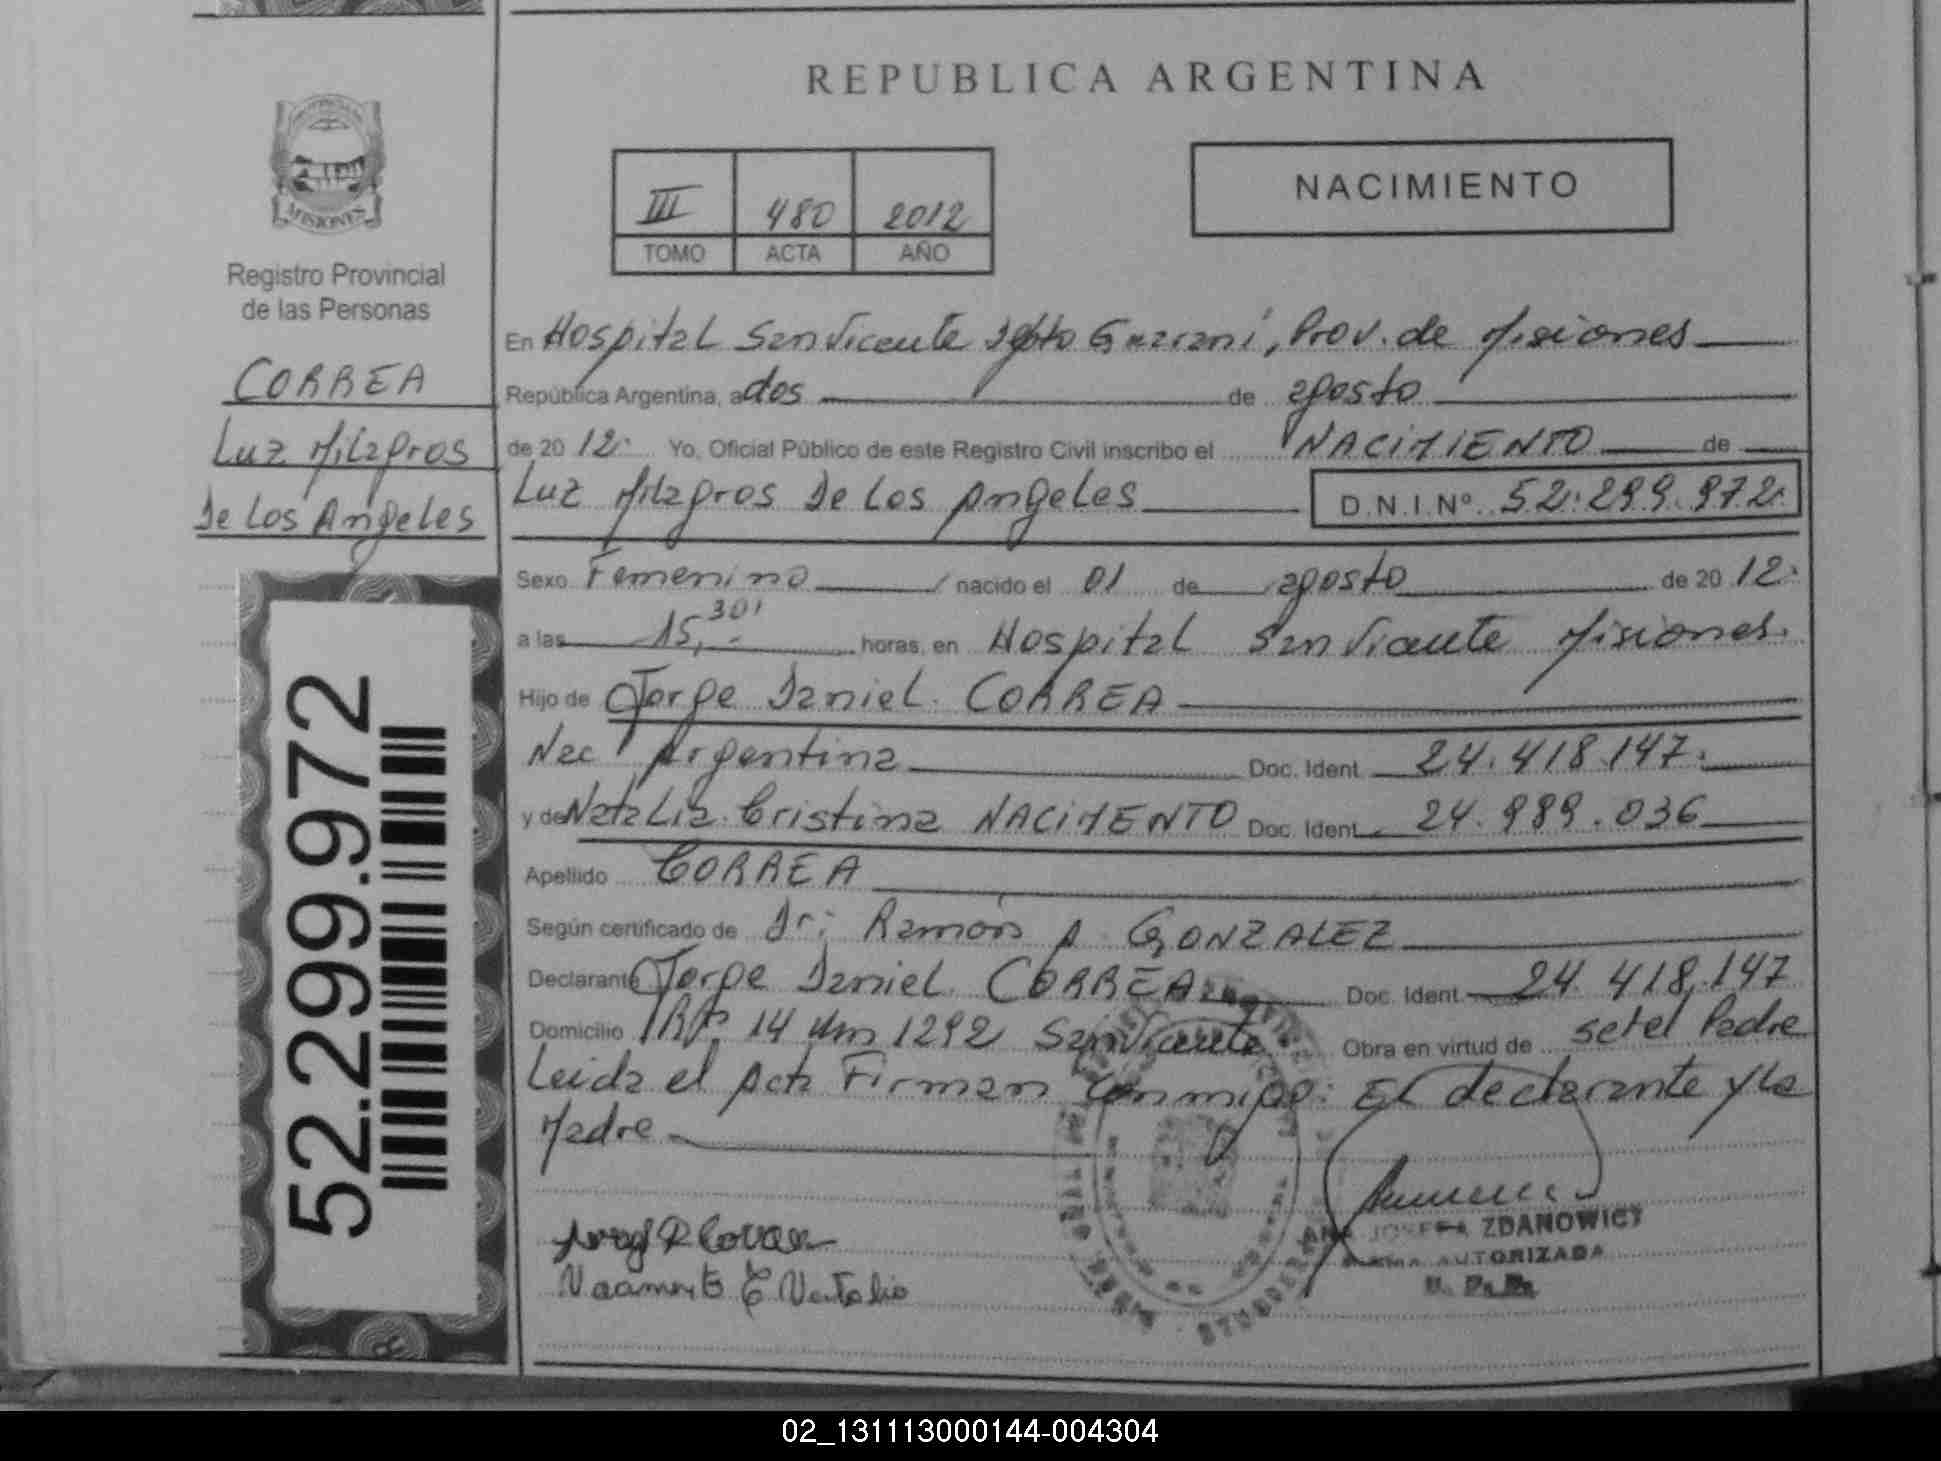 REPUBLICA ARGENTINA
MISIONES
Registro Provincial
de las Personas
CORREA
Luz Milagros
De Los Angeles
52.299.972
III 480 2012
TOMO ACTA AÑO
NACIMIENTO
En Hospital San Vicente Dpto Guaraní, Prov. de Misiones
República Argentina, a dos de agosto
de 2012. Yo, Oficial Público de este Registro Civil inscribo el NACIMIENTO de
Luz Milagros De Los Angeles D.N.I. Nº 52.299.972.
Sexo Femenino nacido el 01 de agosto de 2012.
a las 15,30' horas, en Hospital San Vicente Misiones.
Hijo de Jorge Daniel CORREA
Nac Argentina Doc. Ident. 24.418.147.
y de Natalia Cristina NACIMENTO Doc. Ident. 24.989.036
Apellido CORREA
Según certificado de Dr: Ramón A. GONZALEZ
Declarante Jorge Daniel CORREA Doc. Ident. 24.418.147
Domicilio 14 Km 1292 San Vicente Obra en virtud de ser el Padre
Leida el Acta Firman Conmigo: El declarante y la
Madre
Nacimento C Natalia
JOSEFA ZDANOWICZ
FIRMA AUTORIZADA
02_131113000144-004304